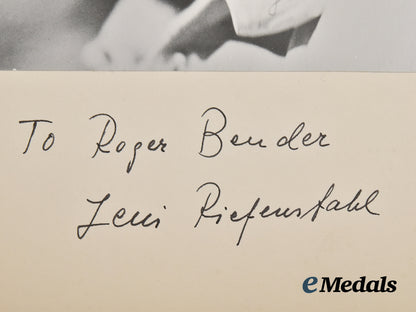 To Roger Bender
Leni Riefenstahl
eMedals